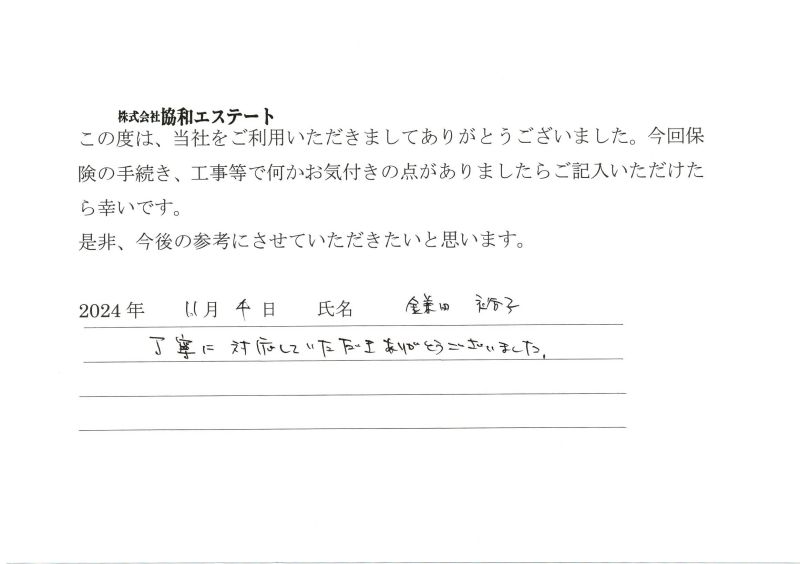 株式会社協和エステート
この度は、当社をご利用いただきましてありがとうございました。今回保
険の手続き、工事等で何かお気付きの点がありましたらご記入いただけた
ら幸いです。
是非、今後の参考にさせていただきたいと思います。
2024年 11月 4日 氏名 鎌田 裕子
丁寧に対応していただきありがとうございました。